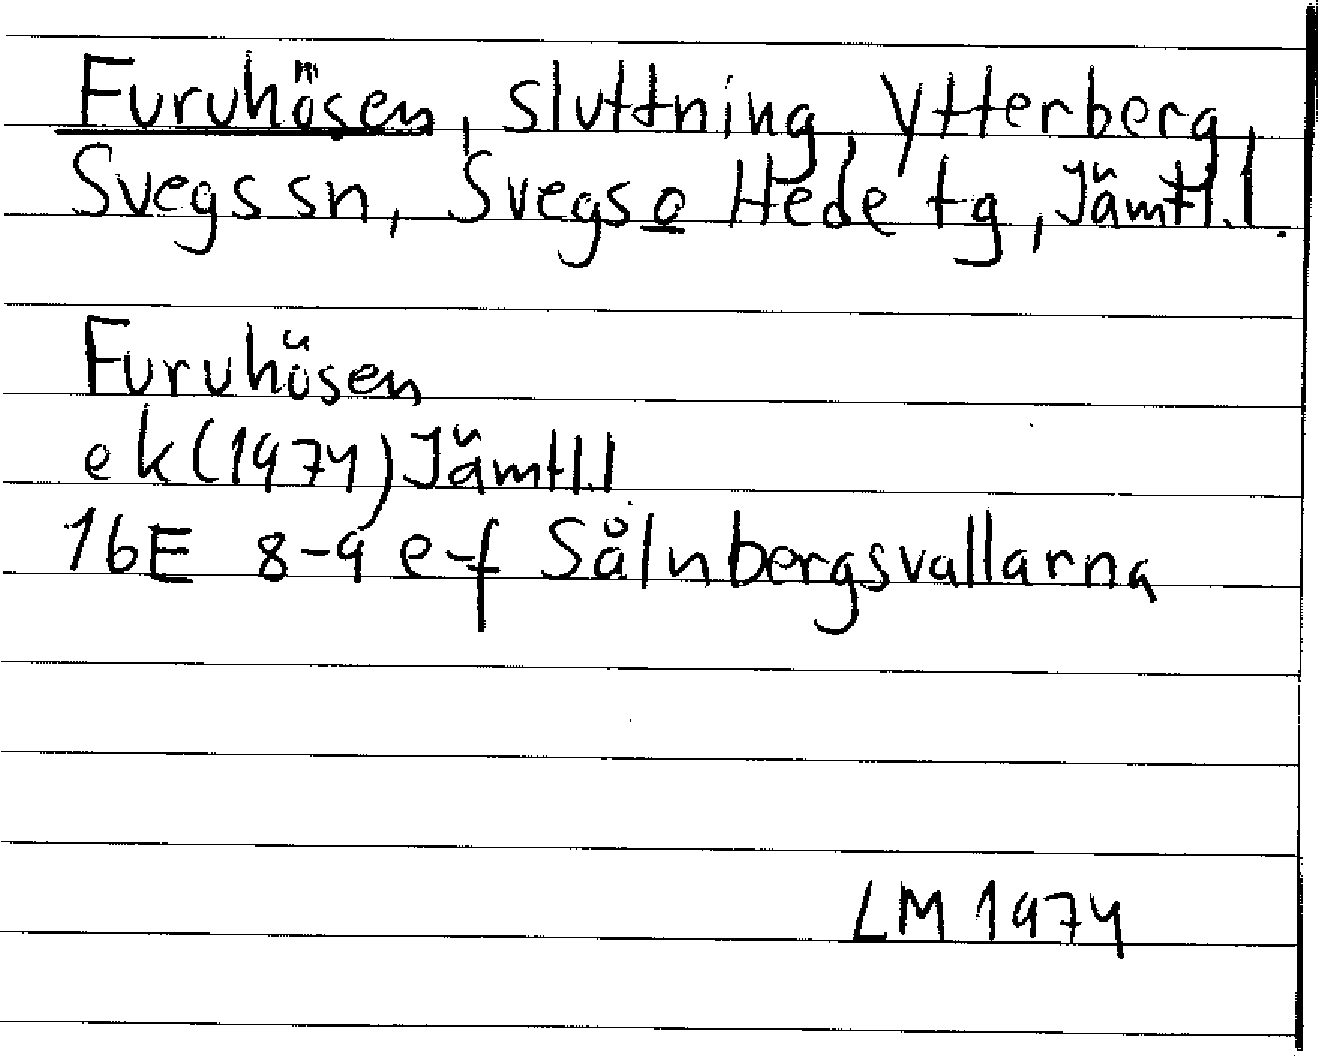 Furuhösen, sluttning, Ytterberg,
Svegs sn, Svegs o Hede tg, Jämtl. l.
Furuhösen
ek (1974) Jämtl. l
16E 8-9 e-f Sålnbergsvallarna
LM 1974